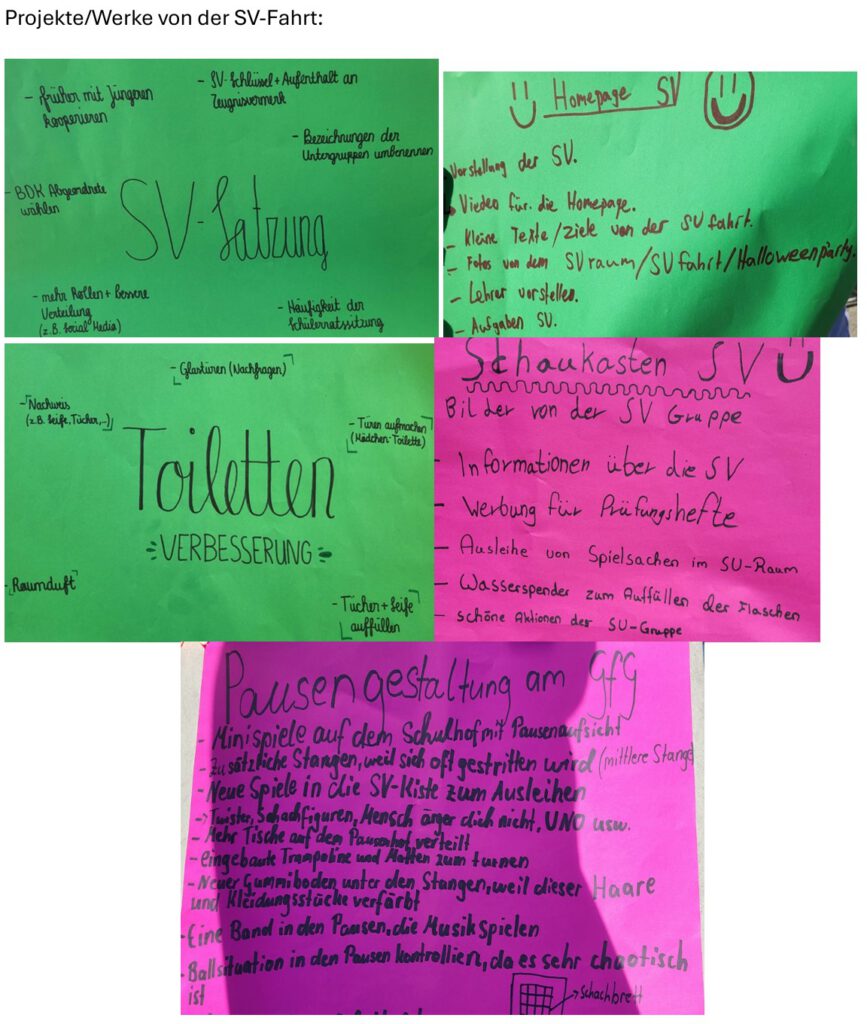 Projekte/Werke von der SV-Fahrt:
- früher mit Jüngeren
kooperieren
- SV-Schlüssel + Aufenthalt an
Zeugnisvermerk
- Bezeichnungen der
Untergruppen umbenennen
- BDK Abgeordnete
wählen
SV-Satzung
- mehr Rollen + bessere
Verteilung
(z.B. Social Media)
- Häufigkeit der
Schülerratssitzung
Homepage SV
Vorstellung der SV.
Viedeo für die Homepage.
- Kleine Texte/ziele von der SV fahrt.
- Fotos von dem SVraum/SVfahrt/Halloweenparty.
- Lehrer vorstellen.
- Aufgaben SV.
- Glastüren (Nachfragen)
- Nachweis
(z.B. Seife, Tücher,..)
- Türen aufmachen
(Mädchen-Toilette)
Toiletten
VERBESSERUNG
- Raumduft
- Tücher + Seife
auffüllen
Schaukasten SV
Bilder von der SV Gruppe
- Informationen über die SV
- Werbung für Prüfungshefte
- Ausleihe von Spielsachen im SV-Raum
- Wasserspender zum Auffüllen der Flaschen
- schöne Aktionen der SV-Gruppe
Pausengestaltung am GfG
- Minispiele auf dem Schulhof mit Pausenaufsicht
- Zusätzliche Stangen, weil sich oft gestritten wird (mittlere Stange
- Neue Spiele in die SV-Kiste zum Ausleihen
-> Twister, Schachfiguren, Mensch ärger dich nicht, UNO usw.
- Mehr Tische auf dem Pausenhof verteilt
- eingebaute Trampoline und Matten zum turnen
- Neuer Gummiboden unter den Stangen, weil dieser Haare
und Kleidungsstücke verfärbt
- Eine Band in den Pausen, die Musik spielen
- Ballsituation in den Pausen kontrollieren, da es sehr chaotisch
ist
-> Schachbrett